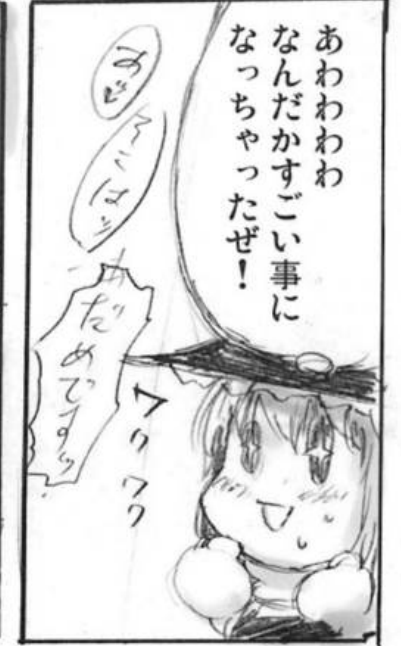 あわわわわ
なんだかすごい事に
なっちゃったぜ！
そこはッ
だめですッ
ワクワク